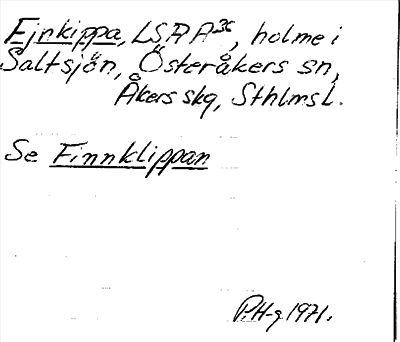 Ejnkippa, LSA A³⁶, holme i
Saltsjön, Österåkers sn,
Åkers skg, Sthlms L.
Se Finnklippan
P.H-g 1971.